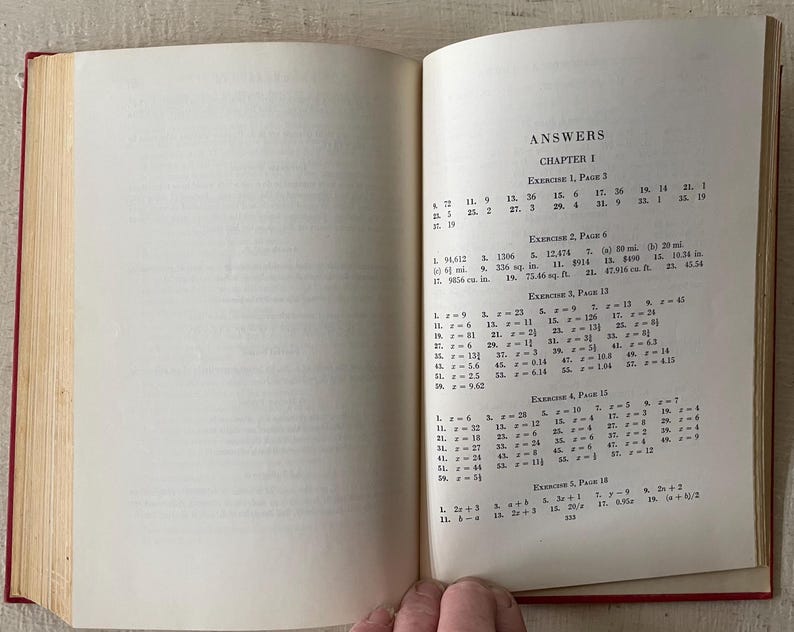 ANSWERS
CHAPTER I
EXERCISE 1, PAGE 3
9. 72 11. 9 13. 36 15. 6 17. 36 19. 14 21.
23. 5 25. 2 27. 3 29. 4 31. 9 33. 1 35. 19
37. 19
EXERCISE 2, PAGE 6
1. 94,612 3. 1306 5. 12,474 7. (a) 80 mi. (b) 20 mi.
(c) mi. 9. 336 sq. in. 11. $914 13. $490 15. 10.34 in.
17. 9856 cu. in. 19. 75.46 sq. ft. 21. 47.916 cu. ft. 23. 45.54
EXERCISE 3, PAGE 13
1. x = 9 3. x = 23 5. x = 9 7. x = 13 9. x = 45
11. x = 6 13. x = 11 15. x = 126 17. x = 24
19. x = 81 21. x = 23. x = 25. x =
27. x = 6 29. x = 31. x = 33. x =
35. x = 37. x = 3 39. x = 41. x = 6.3
43. x = 5.6 45. x = 0.14 47. x = 10.8 49. x = 14
51. x = 2.5 53. x = 6.14 55. x = 1.04 57. x = 4.15
59. x = 9.62
EXERCISE 4, PAGE 15
1. x = 6 3. x = 28 5. x = 10 7. x = 5 9. x = 7
11. x = 32 13. x = 12 15. x = 4 17. x = 3 19. x = 4
21. x = 18 23. x = 6 25. x = 4 27. x = 8 29. x = 6
31. x = 27 33. x = 24 35. x = 6 37. x = 2 39. x = 4
41. x = 24 43. x = 8 45. x = 6 47. x = 4 49. x = 9
51. x = 44 53. x = 55. x = 57. x = 12
59. x =
EXERCISE 5, PAGE 18
1. 2x + 3 3. a + b 5. 3x + 1 7. y − 9 9. 2n + 2
11. b − a 13. 2x + 3 15. 20/x 17. 0.95x 19. (a + b)/2
333